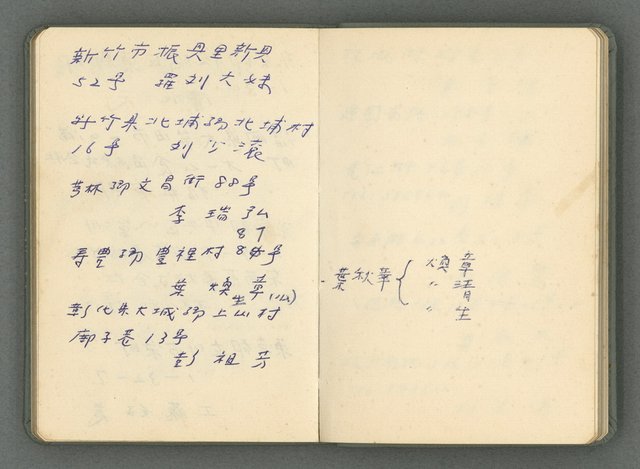 新竹市振興里新興
52号 羅刘大妹
新竹县北埔鄉北埔村
16号 刘少滾
芎林鄉文昌街88号
李瑞弘
87
壽豐鄉豐裡村84号
葉煥章
生(山)
彰化县大城鄉上山村
廟子巷13号
彭祖芬
葉秋華{煥章
〃清
〃生